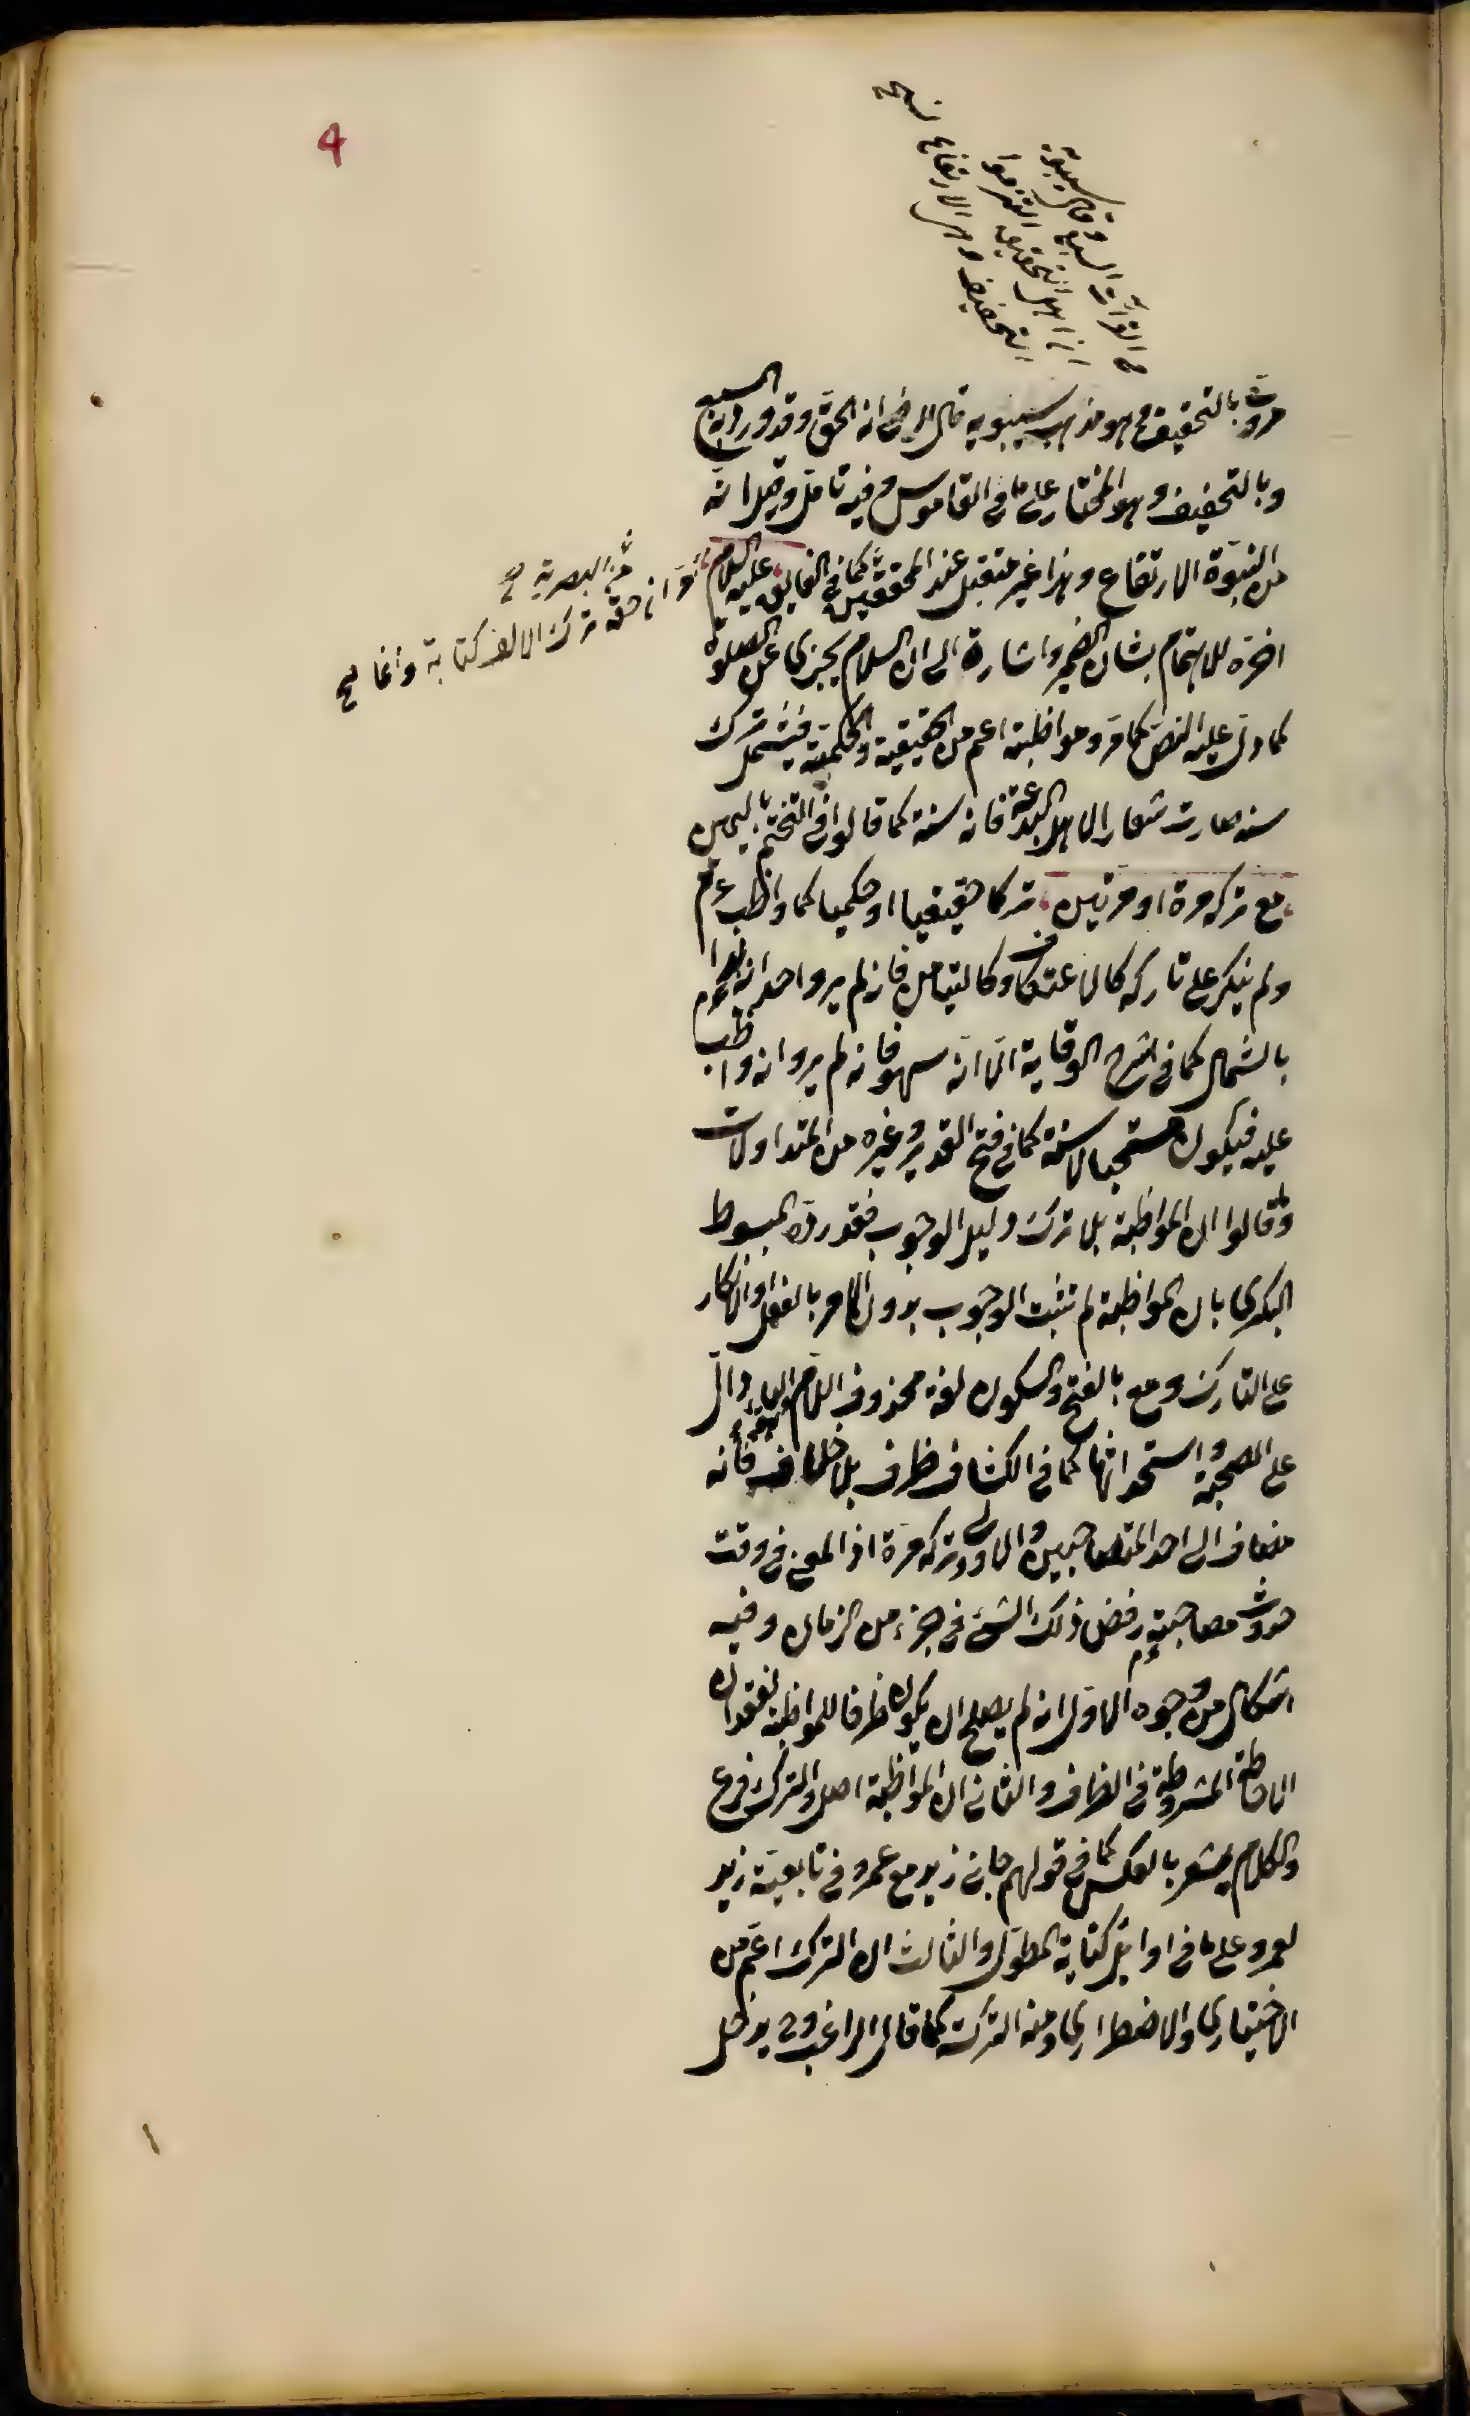 في القرآت السبع وقال سيبويه
ان اهل التحقيق التزموا
التخفيف من الارتفاع نسخه
بالتحقيق وهو مذهب سيبويه قال الرضي انه الحق وقد ورد به السبع
وبالتخفيف وهو المختار على ما في القاموس وفيه تامل وقيل انه
من النبوة الارتفاع وهذا غير متقبل عند المحققين كما في الفايق عليه السلام
من البصرية
حقه ترك الالف كتابة
اخره للاهتمام بشان الضمير واشارة الى ان السلام يجزي عن الصلوة
كما دل عليه النص كما مر ومواظبته اعم من الحقيقية والحكمية فيشمل ترك
سنة صارت شعار الاهل البدعة فانه سنة كما قالوا في التختم باليمين
مع تركه مرة او مرتين تركا حقيقيا او حكميا كما واظب عم
ولم ينكر على تاركه كالاعتكاف وكالتيامن فانه لم يرو احد انه بدا
بالشمال كما في شرح الوقاية الا انه سهو فانه لم يرو انه واظب
عليه فيكون مستحبا لا سنة كما في فتح القدير وغيره من المتداولات
وقالوا ان المواظبة بلا ترك دليل الوجوب فقد رده المبسوط
البكري بان المواظبة لم تثبت الوجوب بدون الامر بالفعل او الانكار
على التارك ومع بالفتح والسكون لغة محذوف اللام دال
على الصحبة كما في الكشاف ظرف بلا خلاف فانه
مضاف الى احد المتصاحبين والاولى وتركه مرة اذ المعنى في وقت
حدوث مصاحبته رفض ذلك الشئ في جزء من الزمان وفيه
اشكال من وجوه الاول انه لم يصلح ان يكون ظرفا للمواظبة لفقدان
الاحاطة المشروطة في الظرف والثاني ان المواظبة اصل والترك فرع
والكلام يشعر بالعكس كما في قولهم جاني زيد مع عمرو في تابعية زيد
لعمرو على ما في اوائل كتابة المطول والثالث ان الترك اعم من
الاختياري والاضطراري ومنه التركة كما قال الراغب وح يدخل